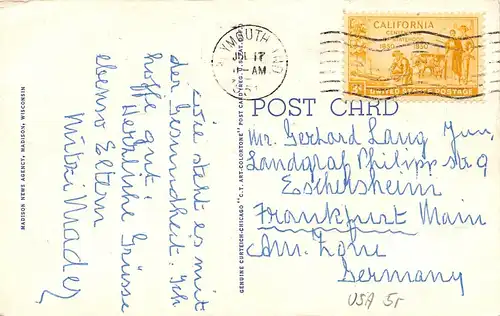 MADISON NEWS AGENCY, MADISON, WISCONSIN
Wie steht es mit
der Gesundheit. Ich
hoffe gut!
Herzliche Grüsse
ebenso Eltern
Mitzi Mader
GENUINE CURTEICH-CHICAGO "C.T. ART-COLORTONE" POST CARD (REG. U.S. PAT. OFF.)
PLYMOUTH IND
JUL 17
AM
CALIFORNIA
CENTENNIAL
OF STATEHOOD
1850 1950
3¢ UNITED STATES POSTAGE
POST CARD
Mr. Gerhard Lang jun.
Landgraf Philipp str 9
Eschersheim
Frankfurt Main
Am. Zone
Germany
USA 5r